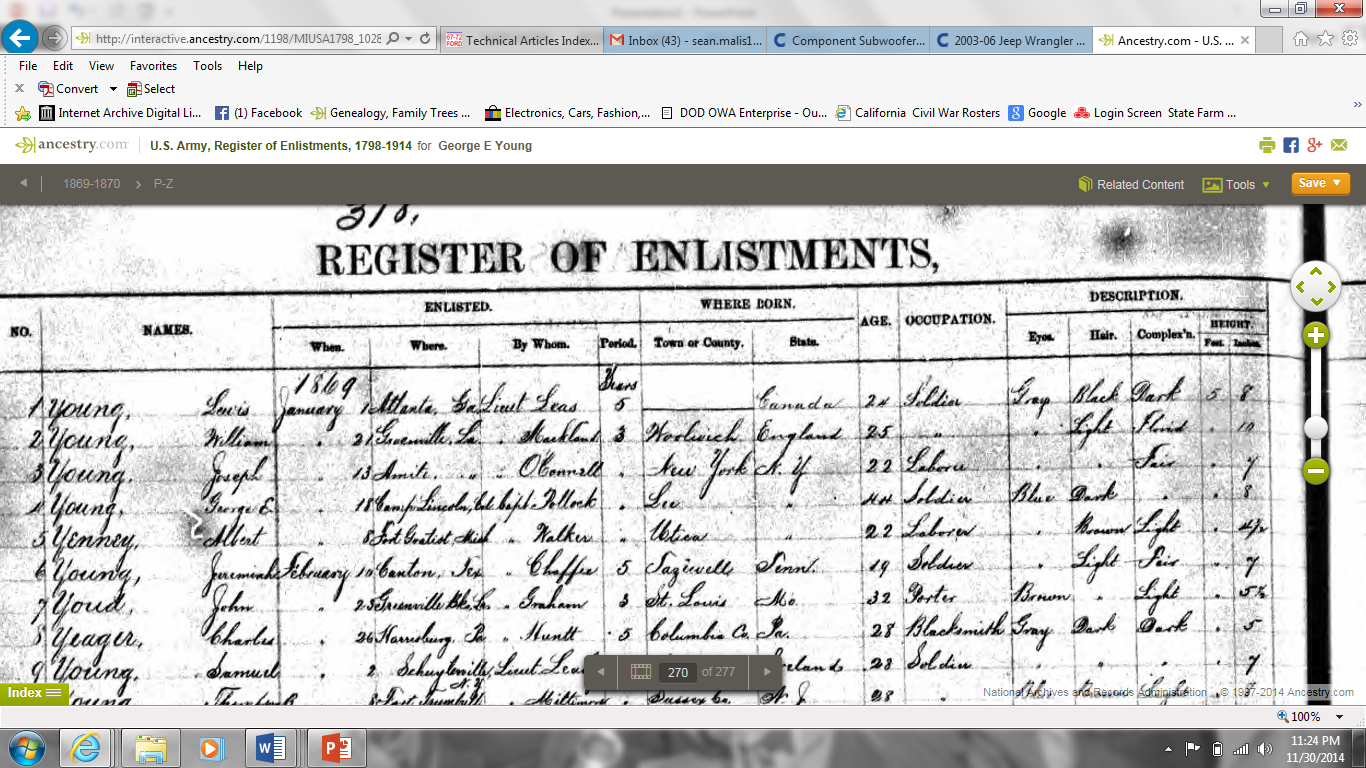 Presentation1 - PowerPoint
http://interactive.ancestry.com/1198/MIUSA1798_1028 67-72 FORD Technical Articles Index... Inbox (43) - sean.malis1... Component Subwoofer... 2003-06 Jeep Wrangler ... Ancestry.com - U.S. ...
File Edit View Favorites Tools Help
Convert Select
Internet Archive Digital Li... (1) Facebook Genealogy, Family Trees ... Electronics, Cars, Fashion,... DOD OWA Enterprise - Ou... California Civil War Rosters Google Login Screen State Farm ...
ancestry.com U.S. Army, Register of Enlistments, 1798-1914 for George E Young
1869-1870 P-Z Related Content Tools Save
318.
REGISTER OF ENLISTMENTS,
ENLISTED. WHERE BORN. DESCRIPTION.
NO. NAMES. AGE. OCCUPATION. HEIGHT.
When. Where. By Whom. Period. Town or County. State. Eyes. Hair. Complex'n. Feet. Inches.
1869 Years
1 Young, Lewis January 1 Atlanta, Ga Lieut Leas 5 Canada 24 Soldier Gray Black Dark 5 8
2 Young, William " 21 Greenville, La " Markland 3 Woolwich England 25 " " Light Florid " 10
3 Young, Joseph " 13 Amite, " " O'Connell " New York N.Y 22 Laborer " " Fair " 7
4 Young, George E. " 18 Camp Lincoln, Cal Capt. Pollock " Lee " 44 Soldier Blue Dark " " 8
5 Yenney, Albert " 8 Fort Gratiot, Mich " Walker " Utica " 22 Laborer " Brown Light " 4½
6 Young, Jeremiah February 10 Canton, Tex " Chaffee 5 Tazewell Tenn. 19 Soldier " Light Fair " 7
7 Youd, John " 25 Greenville Bks, La " Graham 3 St. Louis Mo. 32 Porter Brown " Light " 5½
8 Yeager, Charles " 26 Harrisburg, Pa " Huntt 5 Columbia Co. Pa. 28 Blacksmith Gray Dark Dark " 5
9 Young, Samuel " 2 Schuylerville, N.Y. Lieut Leas 28 Soldier " " " " 7
Young Fort Trumbull " Sussex Co. N.J. 28 "
270 of 277
Index National Archives and Records Administration © 1997-2014 Ancestry.com
100%
11:24 PM
11/30/2014